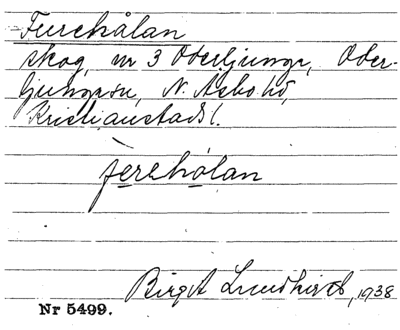 Furehålan
skog, nr 3 Oderljunga, Oder-
ljunga sn, N. Åsbo hd,
Kristianstads l.
ferehålan
Birgit Lundkvist, 1938
Nr 5499.